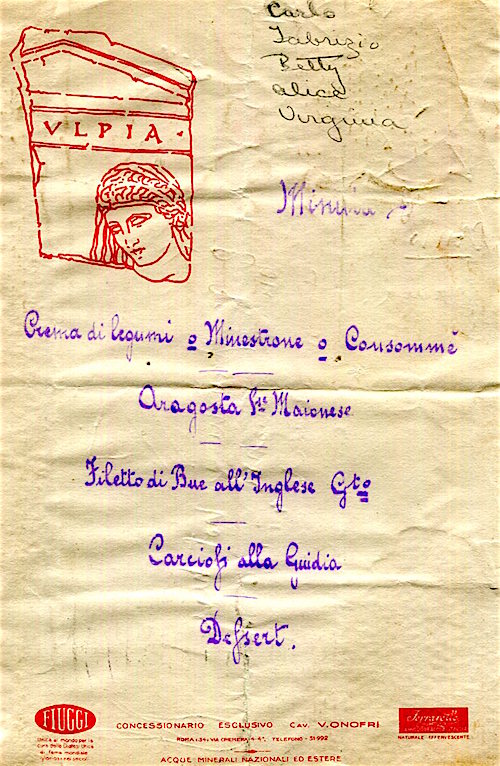 Carlo
Fabrizio
Betty
Alice
Virginia
VLPIA
Minuta
Crema di legumi o Minestrone o Consommè
Aragosta Sse Maionese
Filetto di Bue all'Inglese Gto
Carciofi alla Guidia
Dessert.
FIUGGI
CONCESSIONARIO ESCLUSIVO CAV. V. ONOFRI
ROMA (34) VIA CREMERA 4-4ª. TELEFONO - 31992
ACQUE MINERALI NAZIONALI ED ESTERE
Ferrarelle
NATURALE EFFERVESCENTE